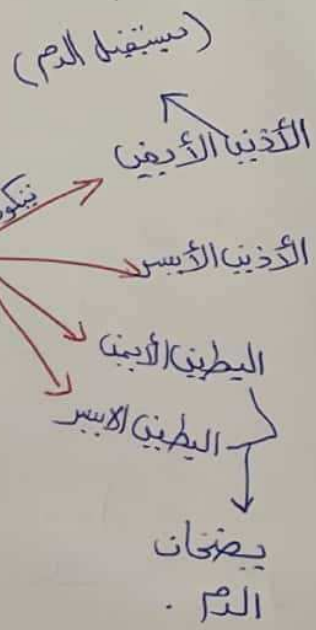 (يستقبل الدم)
الأذين الأيمن
الأذين الأيسر
البطين الأيمن
البطين الايسر
يضخان
الدم .